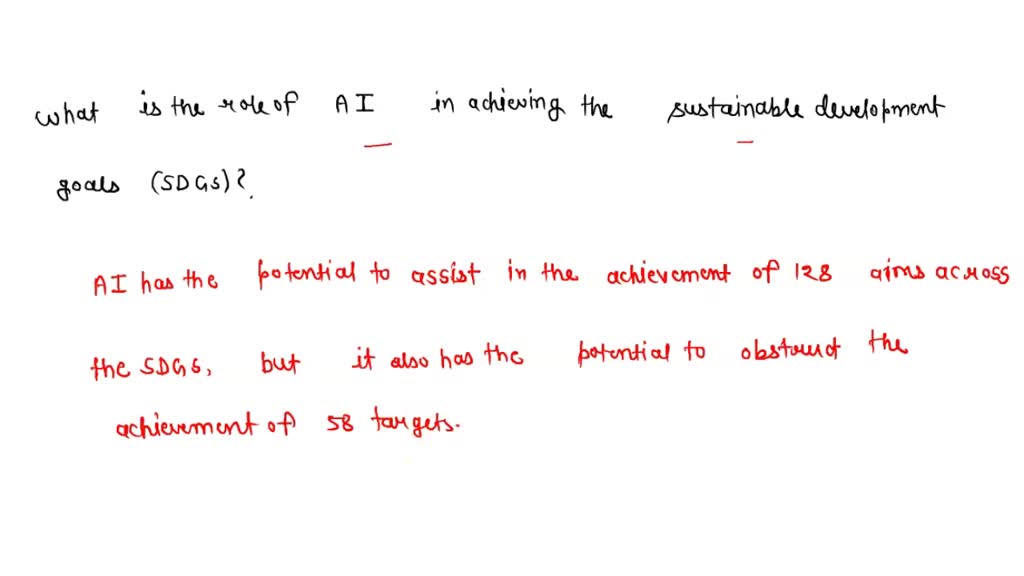 what is the role of AI in achieving the sustainable development
goals (SDGs)?
AI has the potential to assist in the achievement of 128 aims across
the SDGs, but it also has the potential to obstruct the
achievement of 58 targets.